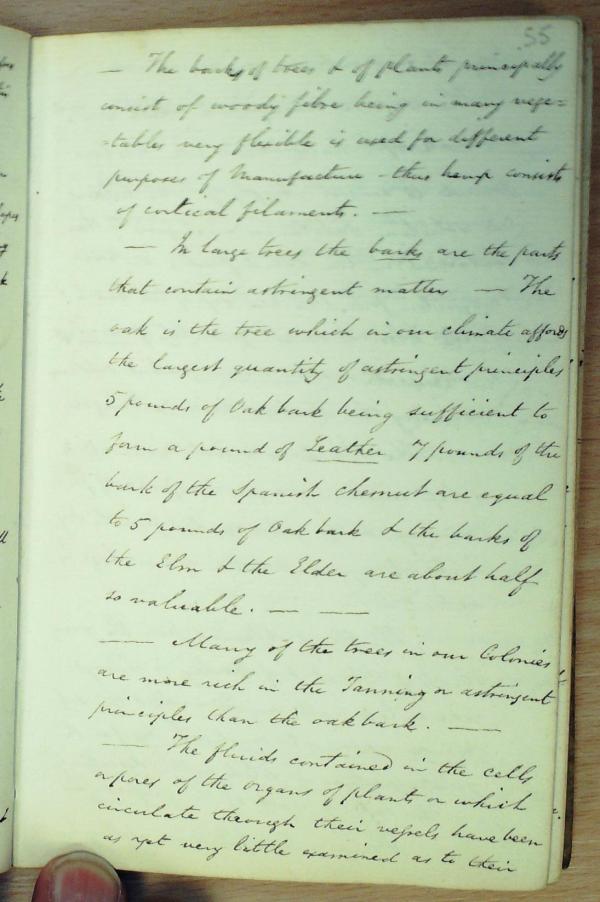 55
— The barks of trees & of plants principally
consist of woody fibre being in many vege=
=tables very flexible is used for different
purposes of Manufacture - thus hemp consists
of cortical filaments. —
— In large trees the barks are the parts
that contain astringent matter — The
oak is the tree which in our climate affords
the largest quantity of astringent principles
5 pounds of Oak bark being sufficient to
form a pound of Leather 7 pounds of the
bark of the Spanish chesnut are equal
to 5 pounds of Oak bark & the barks of
the Elm & the Elder are about half
so valuable. — —
— Many of the trees in our Colonies
are more rich in the Tanning or astringent
principles than the oak bark. —
— The fluids contained in the cells
or pores of the organs of plants or which
circulate through their vessels have been
as yet very little examined as to their